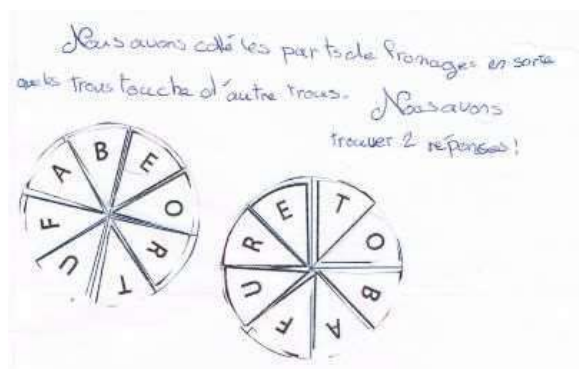 Nous avons collé les parts de fromages en sorte
que les trous touche d'autre trous. Nous avons
trouver 2 réponses!
A B E O R T U F
E T O B A F U R